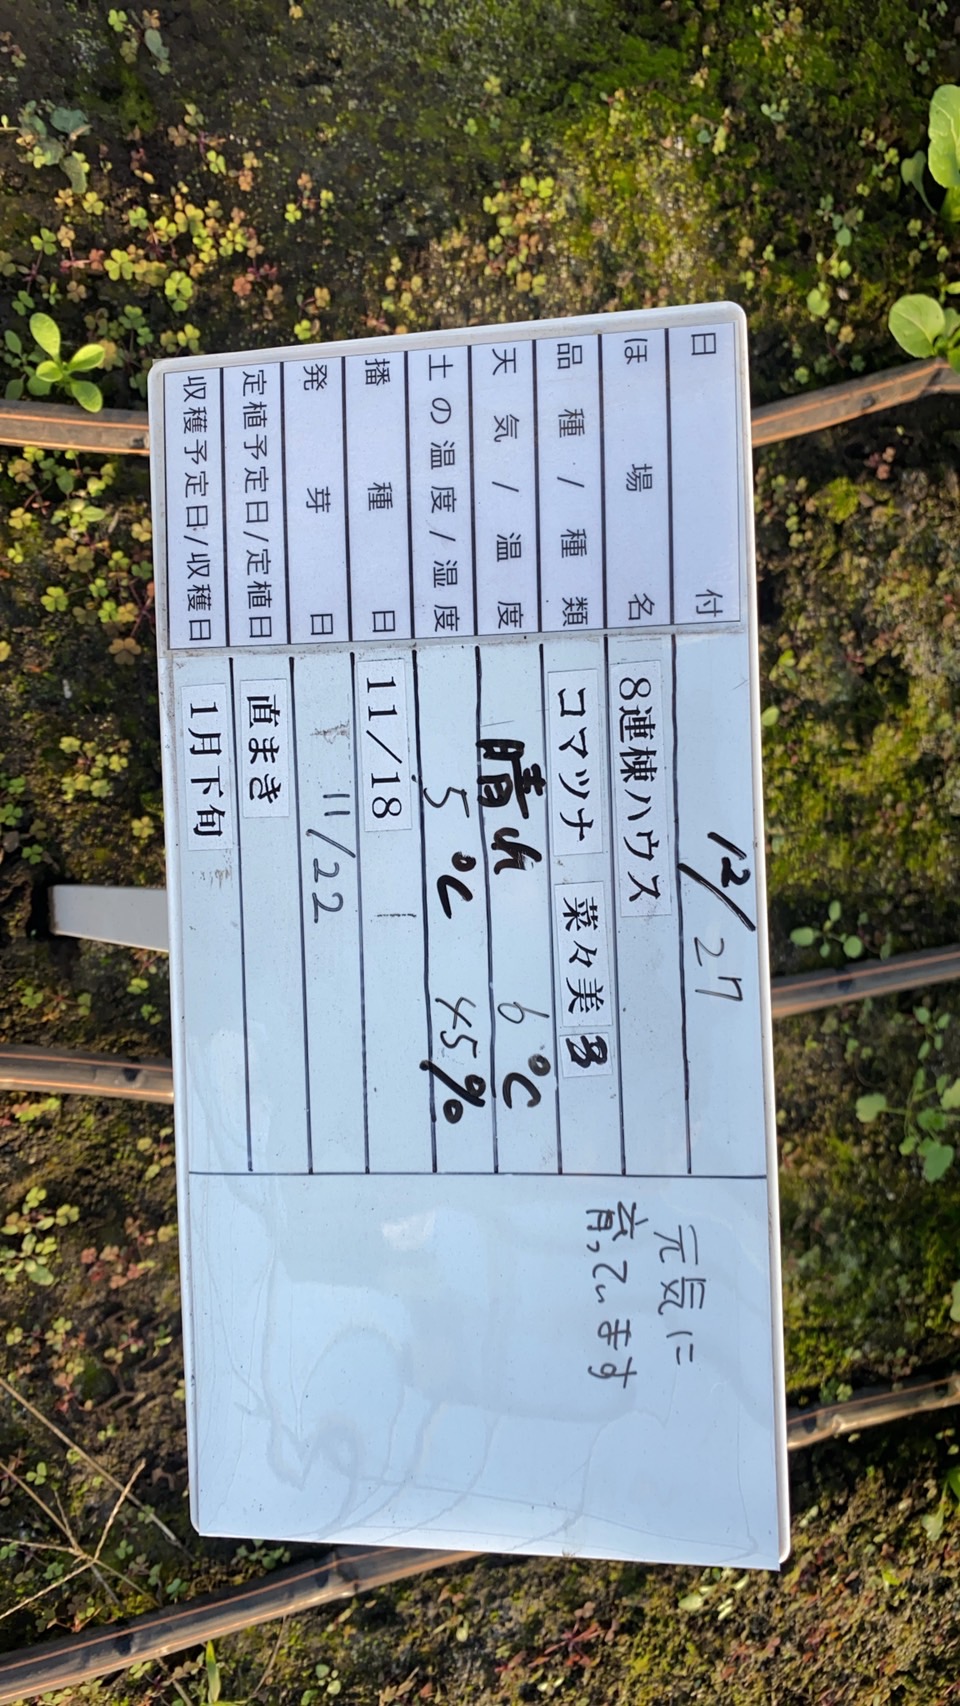 日付 12/27
ほ場名 8連棟ハウス
品種/種類 コマツナ 菜々美
天気/温度 晴れ 6℃
土の温度/湿度 5℃ 45%
播種日 11/18
発芽日 11/22
定植予定日/定植日 直まき
収穫予定日/収穫日 1月下旬
元気に
育っています